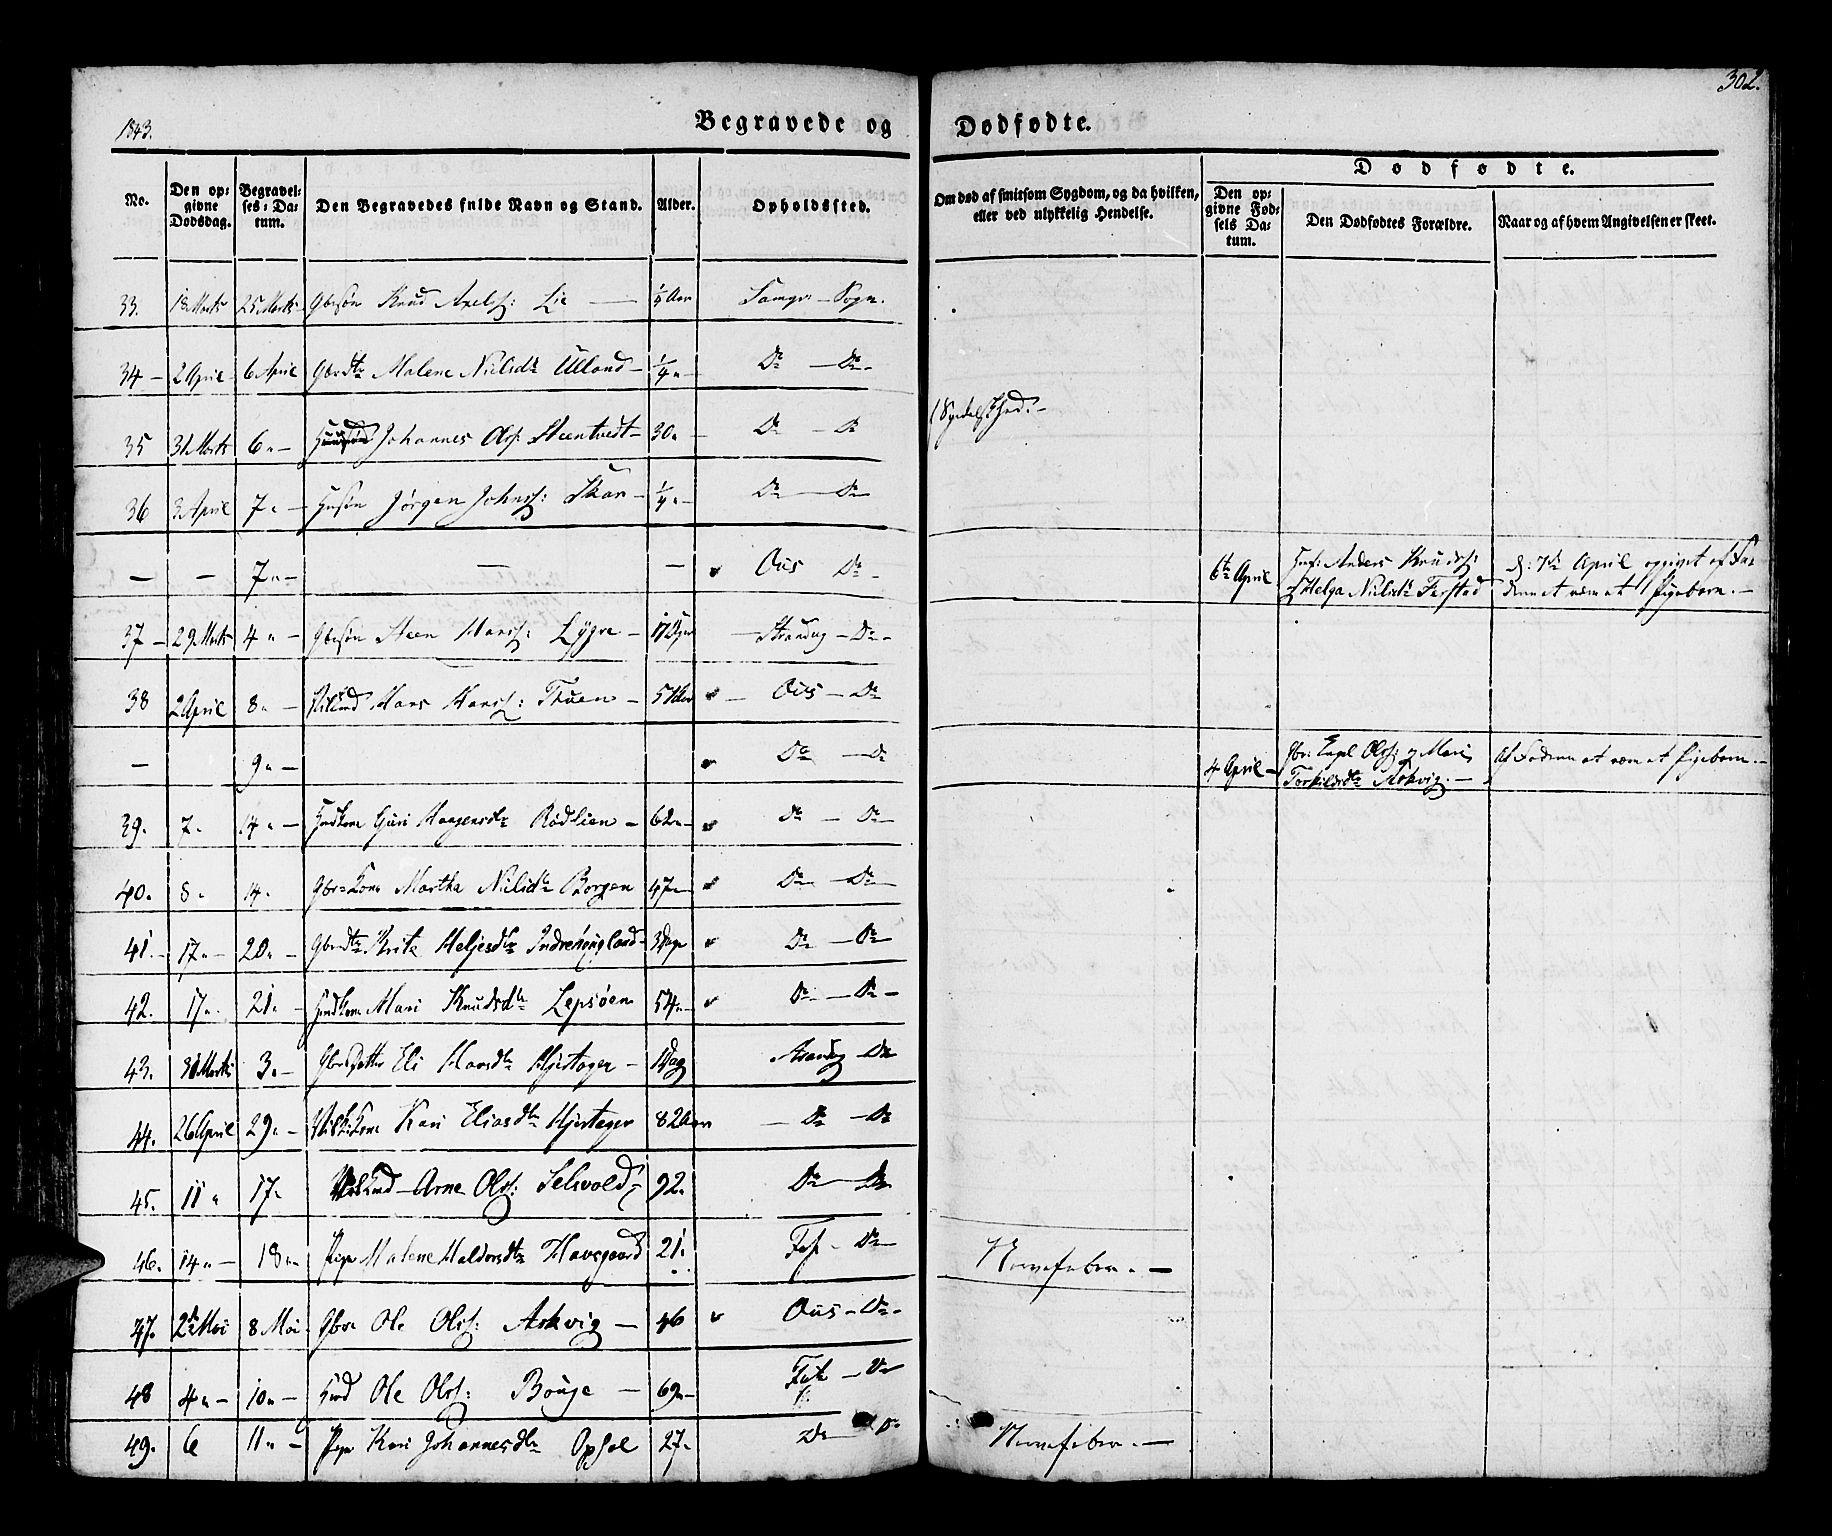 1843.
Begravede og Dødfødte.
302.
No.
Den opgivne Dødsdag.
Begravelses-Datum.
Den Begravedes fulde Navn og Stand.
Alder.
Opholdssted.
Om død af smitsom Sygdom, og da hvilken, eller ved ulykkelig Hendelse.
Dødfødte.
Den opgivne Fødsels Datum.
Den Dødfødtes Forældre.
Naar og af hvem Angivelsen er skeet.
33. 18 Marts 25 Marts Gbrsøn Knud Axels: Lie — Sogn.
34 – 2 April 6 April Gbrdtr Malene Nielsdr Ulland – 1/4 " Do – Do –
35 31 Marts 6 " – Johannes Ols: Steentvedt – 30 " Do – Do (Spedalskhed. –
36 3 April 7 " – Husm Jørgen Johns: Skar – 1/4 " Do – Do
— — 7 " – — — Ous Do – 6te April Husm: Anders Knuds: & Helga Nielsdr D: 7de April opgivet af Faderen at være et Pigebarn. –
37 – 29 Marts 4 " – Gbrsøn Steen Hans: Lygre – 17 Strandvg – Do –
38 2 April 8 " – Hans Hans: Tuen – Ous – Do
— 9 " – Do – Do 4 April – Gbr: Ols: & Mari Torkildsdr Askvig. – Af Faderen at være et Pigebarn. –
39. 7 " 14 " – Huskone Guri Haagensdr Rødlien – 62 " – Do – Do –
40. 8 " 14 " Gbr: Kone Martha Nielsdr Borgen 47 " – Do – Do –
41. – 17 " – 20 " – Gbrdtr Brita Heljesdr Indrehougland – 3 Dage Do – Do
42. 17 " – 21 " – Huskone Mari Knudsdr Lepsøen 54 " – Do – Do –
43. 31 Marts 3 " – Gbrs Datter Eli Hansdr Hjertager – 1 Dag Strandvg – Do
44. 26 April 29 " – Kone Kari Eliasdr Hjertager 82 Aar — Do – Do
45. 11 " 17 " – Arne Ols: Selsvold 92 " Do – Do
46. 14 " – 18 " – Pige Malene Haldorsdtr Havsgaard 21 " Fuse – Do – Nervefeber. —
47. 2de Mai 8 Mai Gbr Ole Ols: Askvig — 46 Ous – Do –
48 4 " – 10 " – Husmd Ole Ols: Bouge — 69 " – Fuse – Do
49. 6 11 " – Pige Kari Johannesdtr Opsal 27 " Do – Do – Nervefeber. —